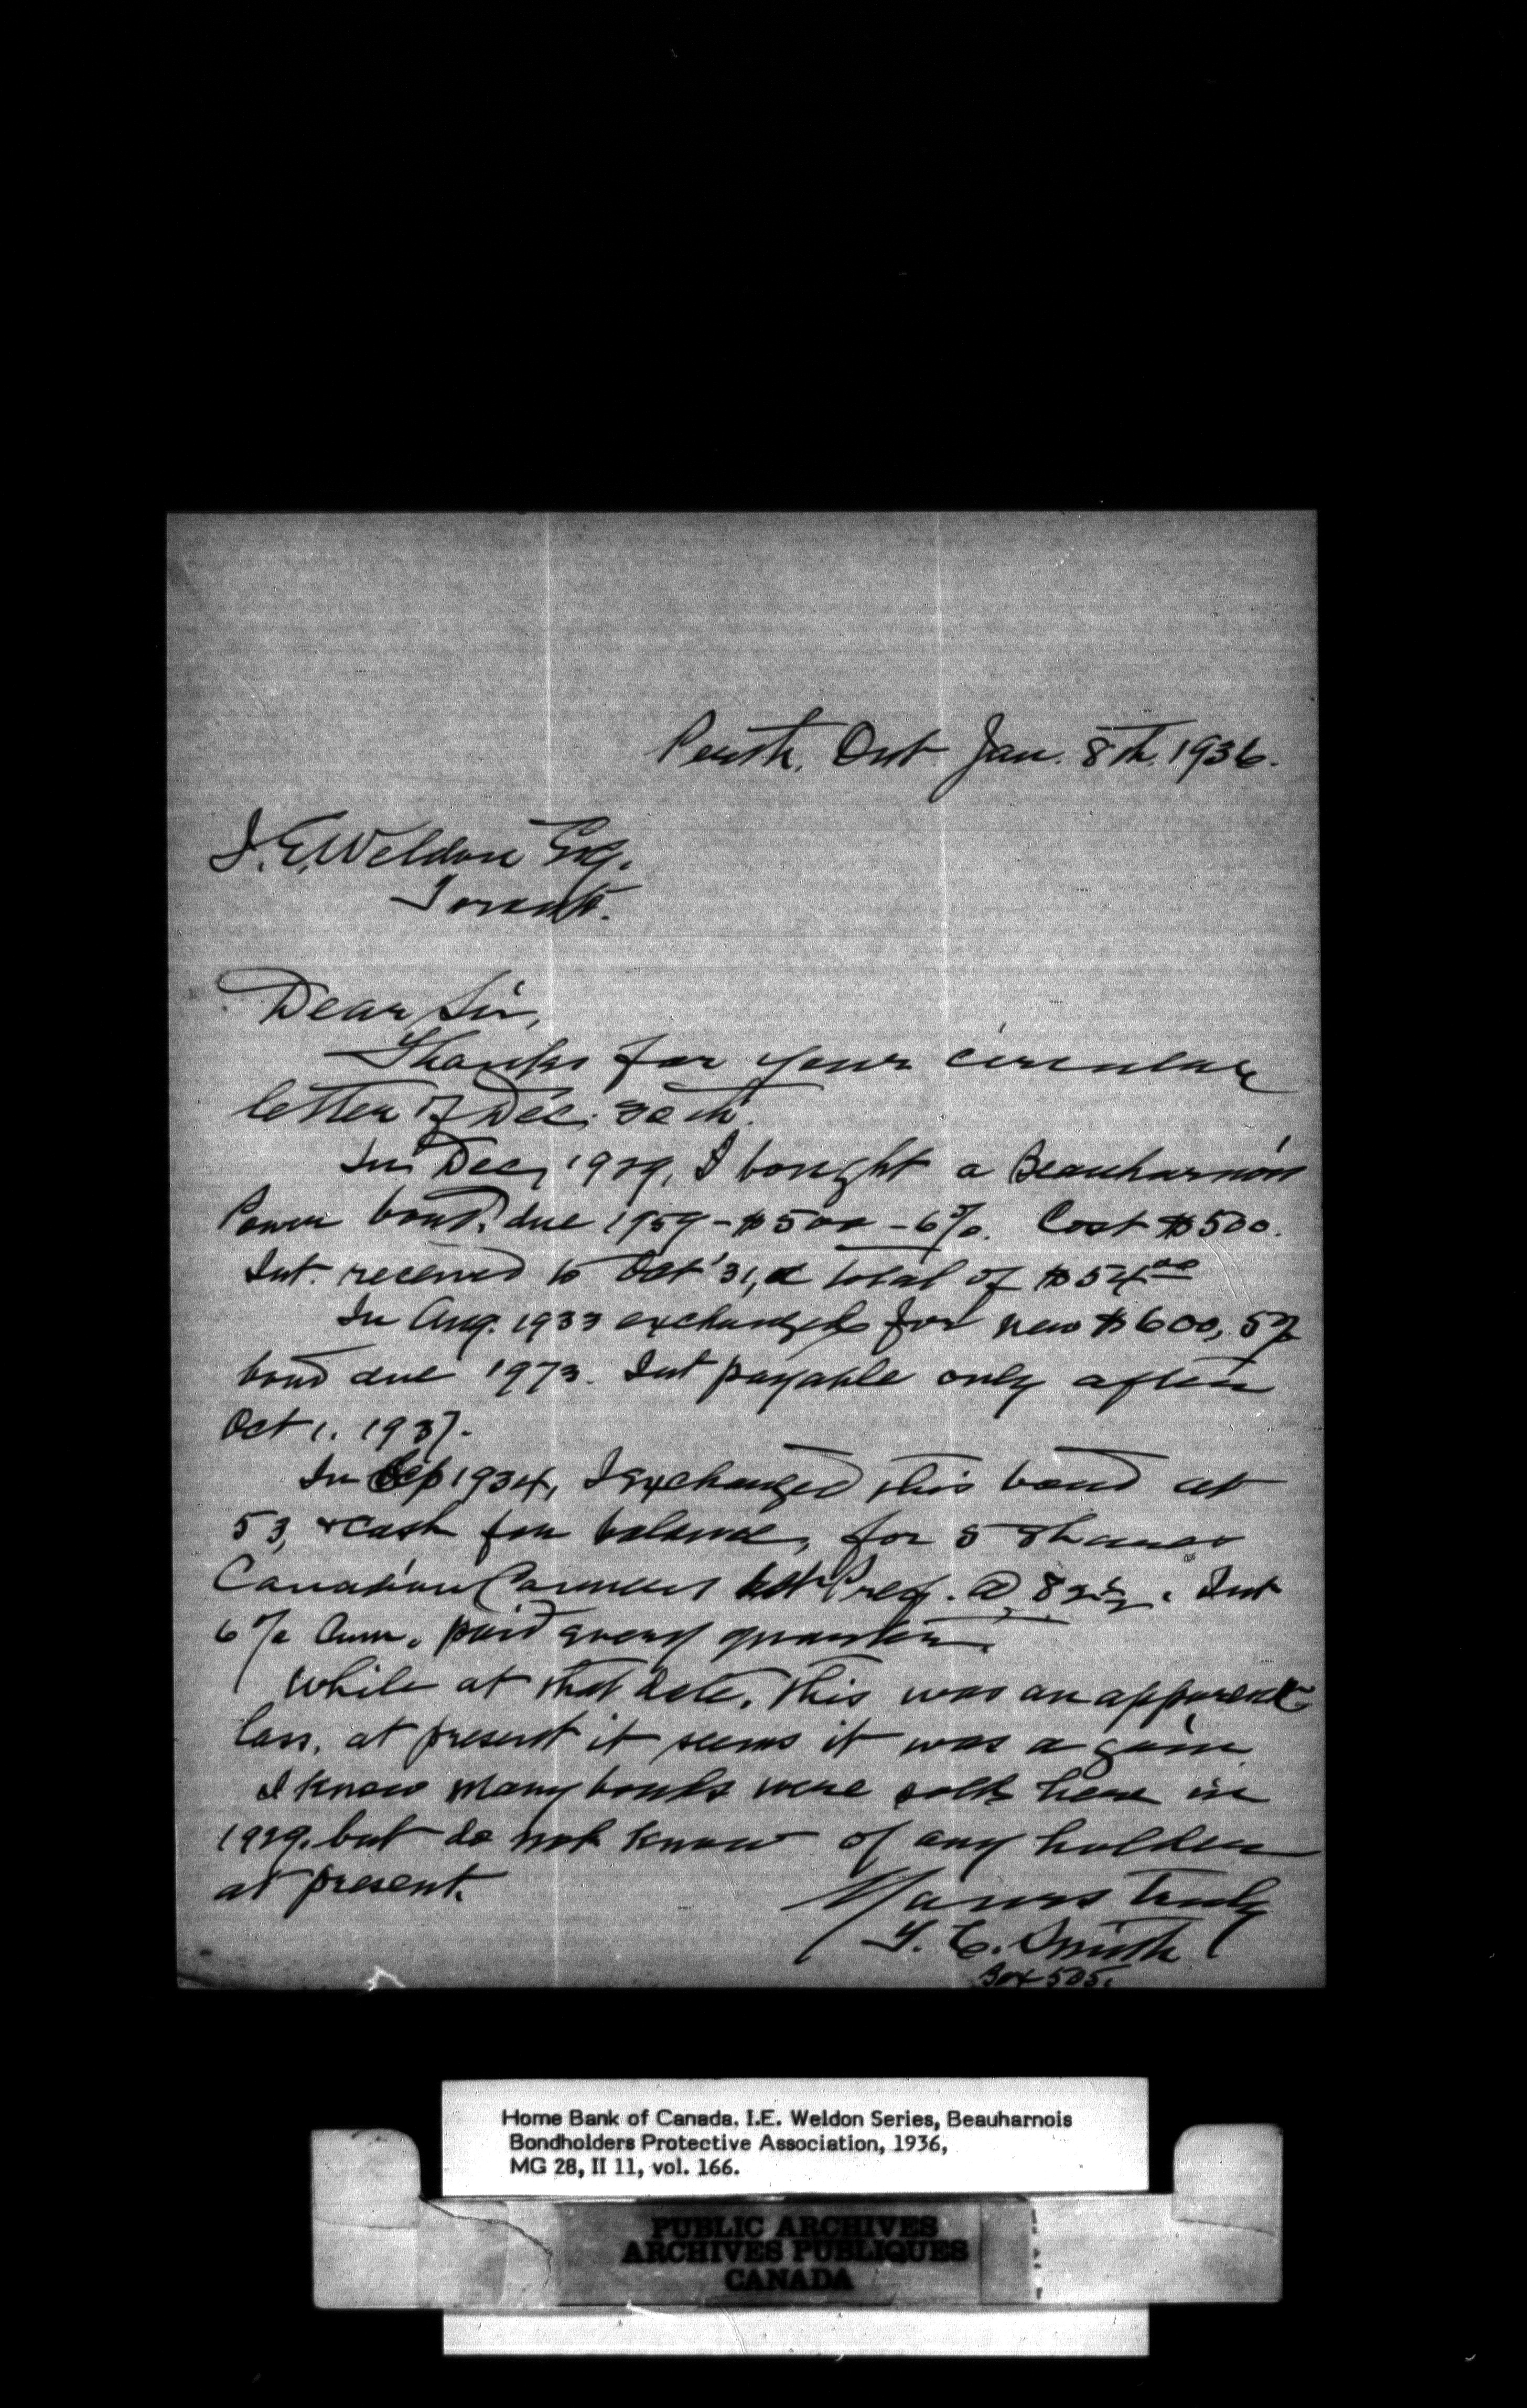 Perth, Ont Jan. 8th. 1936.
I. E. Weldon Esq.
Toronto.
Dear Sir,
Thanks for your circular
letter of Dec. 30th.
In Dec, 1929, I bought a Beauharnois
Power bond, due 1959 - $500 - 6%. Cost $500.
Int. received to Oct '31, a total of $54.00
In Aug. 1933 exchanged for new $600, 5%
bond due 1973. Int payable only after
Oct 1. 1937.
In Sep 1934, I exchanged this bond at
53, & cash for balance, for 5 Shares
Canadian Pref. @ 82½. Int
6% Cum. paid every quarter.
While at that date, this was an apparent
loss, at present it seems it was a gain.
I know many bonds were sold here in
1929, but do not know of any holder
at present.
Yours truly
Smith
Box 505.
Home Bank of Canada. I.E. Weldon Series, Beauharnois
Bondholders Protective Association, 1936,
MG 28, II 11, vol. 166.
PUBLIC ARCHIVES
ARCHIVES PUBLIQUES
CANADA